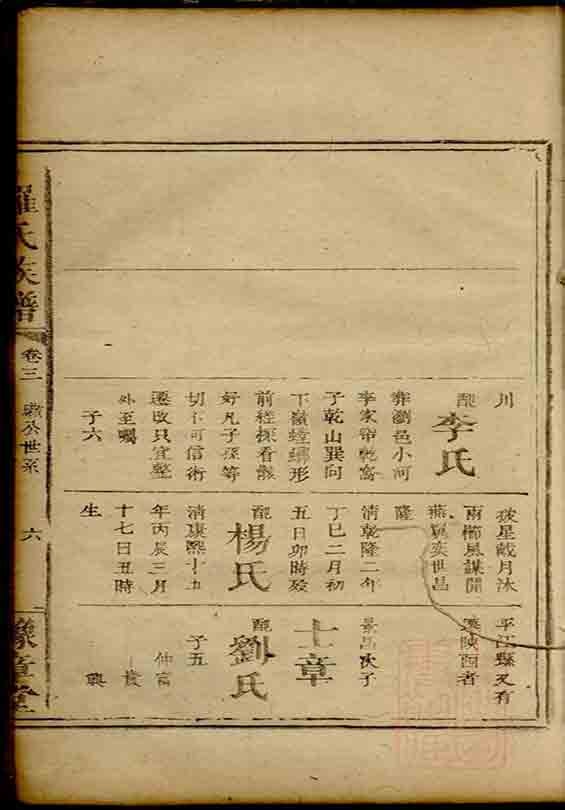 川
配李氏
葬瀏邑小河
李家
子乾山巽向
下嶺螳螂形
前經採看骸
好凡子孫等
切不可信術
遷改只宜整
外至囑
子六
披星戴月沐
雨櫛風謀開
燕翼奕世昌
隆
清乾隆二年
丁巳二月初
五日卯時歿
配楊氏
清康熙十五
年丙辰三月
十七日丑時
生
平江縣又有
遷陝西者
景昌次子
士章
配劉氏
子五
仲富
貴
興
羅氏族譜
卷三
公世系
六
豫章堂